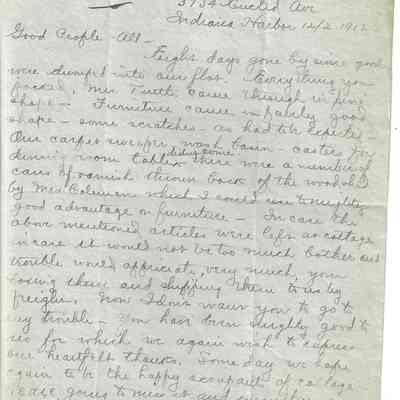 3734 Euclid Ave
Indiana Harbor 12/2 1912
Good People All -
Eight days gone by since good
were dumped into our flat. Everything you
packed, Mrs Tuttle came through in fine
shape - Furniture came in fairly good
shape - some scratches as had to be expected
Our carpet sweeper, wash basin - casters for
dining room table & there were a number of
dining some
cans of varnish thrown back of the woodshed
by Mrs Coleman which I could use to mighty
good advantage on furniture - In case the
above mentioned articles were left at cottage
in case it would not be too much bother and
trouble would appreciate, very much, your
boxing them and shipping them to us by
freight. Now I don't want you to go to
any trouble - You have been mighty good to
us for which we again wish to express
our heartfelt thanks. Some day we hope
again to be the happy occupants of cottage
going to miss it and